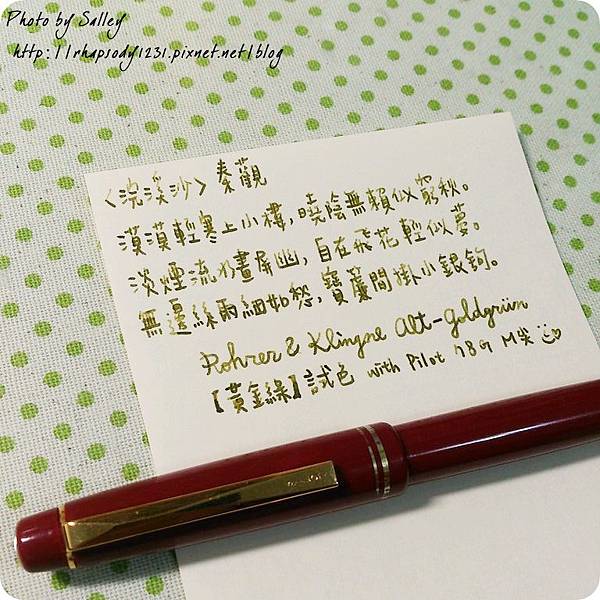 Photo by Salley
http://rhapsody1231.pixnet.net/blog
〈浣溪沙〉 秦觀
漠漠輕寒上小樓，曉陰無賴似窮秋。
淡煙流水畫屏幽，自在飛花輕似夢。
無邊絲雨細如愁，寶簾閒掛小銀鉤。
Rohrer & Klingne Alt-goldgrün
【黃金綠】試色 with Pilot 78G M尖